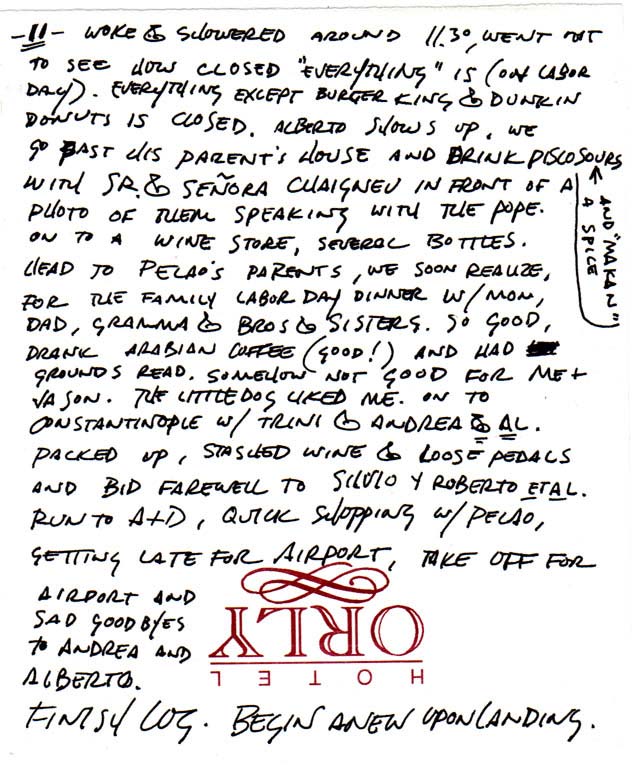 -11- WOKE & SHOWERED AROUND 11.30, WENT OUT
TO SEE HOW CLOSED "EVERYTHING" IS (ON LABOR
DAY). EVERYTHING EXCEPT BURGER KING & DUNKIN
DONUTS IS CLOSED. ALBERTO SHOWS UP, WE
GO PAST HIS PARENT'S HOUSE AND DRINK PISCO SOURS
WITH SR. & SEÑORA CHAIGNEU IN FRONT OF A
PHOTO OF THEM SPEAKING WITH THE POPE.
ON TO A WINE STORE, SEVERAL BOTTLES.
HEAD TO PELAO'S PARENTS, WE SOON REALIZE,
FOR THE FAMILY LABOR DAY DINNER W/MOM,
DAD, GRAMMA & BROS & SISTERS. SO GOOD,
DRANK ARABIAN COFFEE (GOOD!) AND HAD
GROUNDS READ. SOMEHOW NOT GOOD FOR ME +
JASON. THE LITTLE DOG LIKED ME. ON TO
CONSTANTINOPLE W/ TRINI & ANDREA & AL.
PACKED UP, STASHED WINE & LOOSE PEDALS
AND BID FAREWELL TO SILVIO Y ROBERTO ET AL.
RUN TO A+D, QUICK SHOPPING W/ PELAO,
GETTING LATE FOR AIRPORT, TAKE OFF FOR
AIRPORT AND
SAD GOODBYES
TO ANDREA AND
ALBERTO.
FINISH LOG. BEGIN ANEW UPON LANDING.
AND "MAKAN"
A SPICE
HOTEL
ORLY